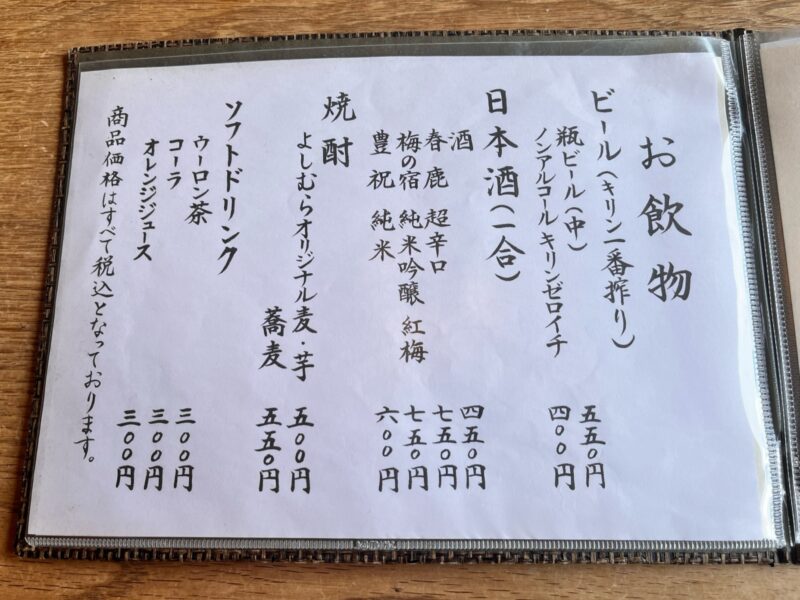 お飲物
ビール(キリン一番搾り)
瓶ビール(中) 五五〇円
ノンアルコール キリンゼロイチ 四〇〇円
日本酒(一合)
酒 四五〇円
春鹿 超辛口 七五〇円
梅の宿 純米吟醸 紅梅 七五〇円
豊祝 純米 六〇〇円
焼酎
よしむらオリジナル麦・芋 五〇〇円
蕎麦 五五〇円
ソフトドリンク
ウーロン茶 三〇〇円
コーラ 三〇〇円
オレンジジュース 三〇〇円
商品価格はすべて税込となっております。